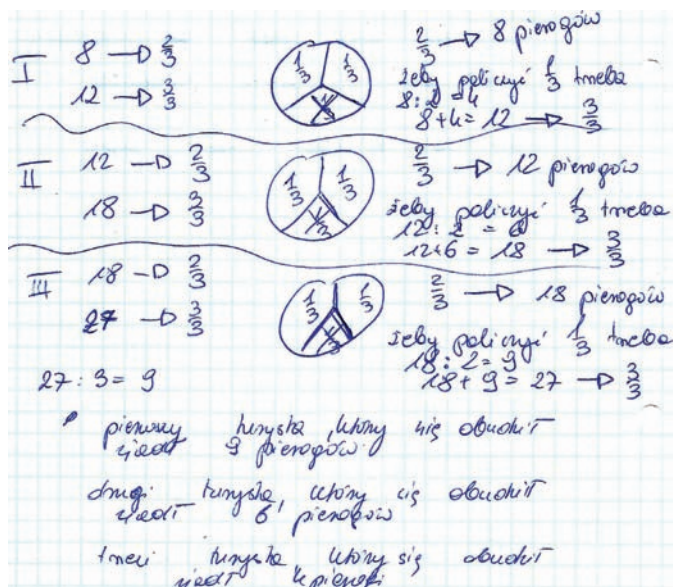 I 8 → 2/3
12 → 3/3
1/3 1/3 1/3
2/3 → 8 pierogów
żeby policzyć 1/3 trzeba
8:2 = 4
8+4 = 12 → 3/3
II 12 → 2/3
18 → 3/3
1/3 1/3 1/3
2/3 → 12 pierogów
żeby policzyć 1/3 trzeba
12:2 = 6
12+6 = 18 → 3/3
III 18 → 2/3
27 → 3/3
1/3 1/3 1/3
2/3 → 18 pierogów
żeby policzyć 1/3 trzeba
18:2=9
18+9 = 27 → 3/3
27:3= 9
pierwszy turysta, który się obudził
zjadł 9 pierogów.
drugi turysta, który się obudził
zjadł 6 pierogów
trzeci turysta który się obudził
zjadł 4 pierogi